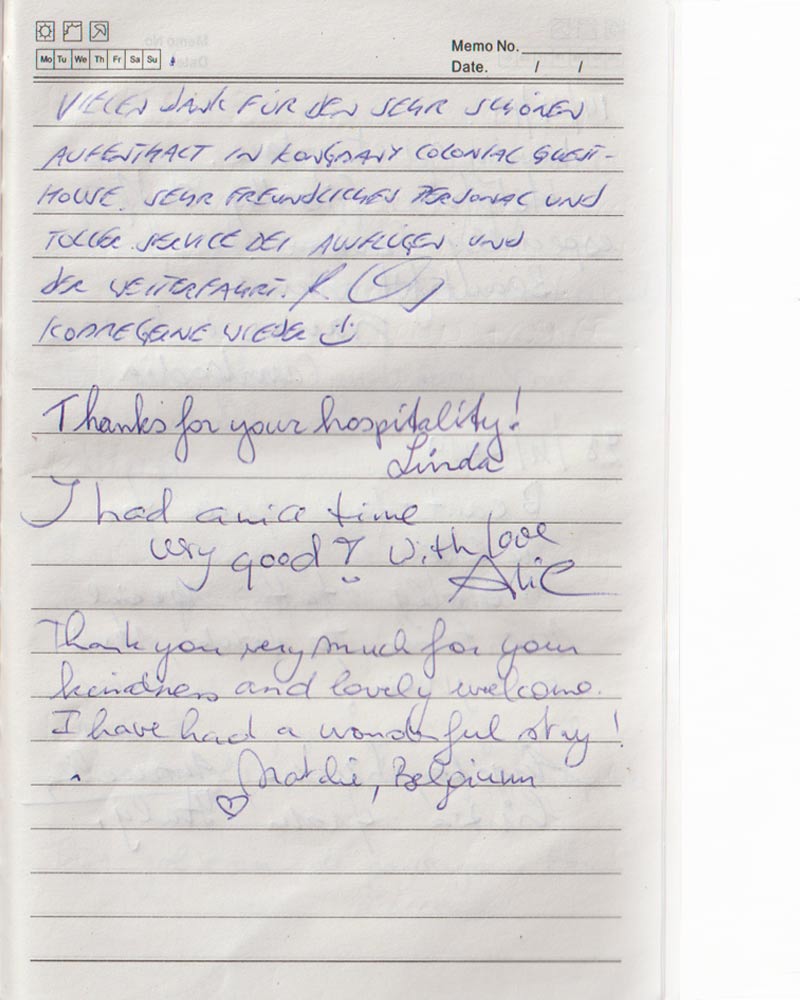 Memo No.
Mo Tu We Th Fr Sa Su
Date. / /
VIELEN DANK FÜR DEN SEHR SCHÖNEN
AUFENTHALT IN KONGMANY COLONIAL GUEST-
HOUSE. SEHR FREUNDLICHES PERSONAL UND
TOLLER SERVICE BEI AUSFLÜGEN UND
DER WEITERFAHRT.
KOMME GERNE WIEDER
Thanks for your hospitality!
Linda
I had a nice time
very good! With love
Alic
Thank you very much for your
kindness and lovely welcome.
I have had a wonderful stay!
Belgium